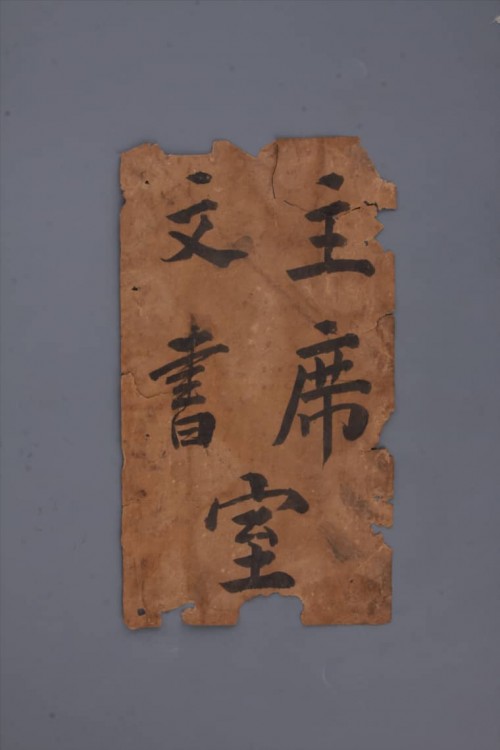 主席
文書
室